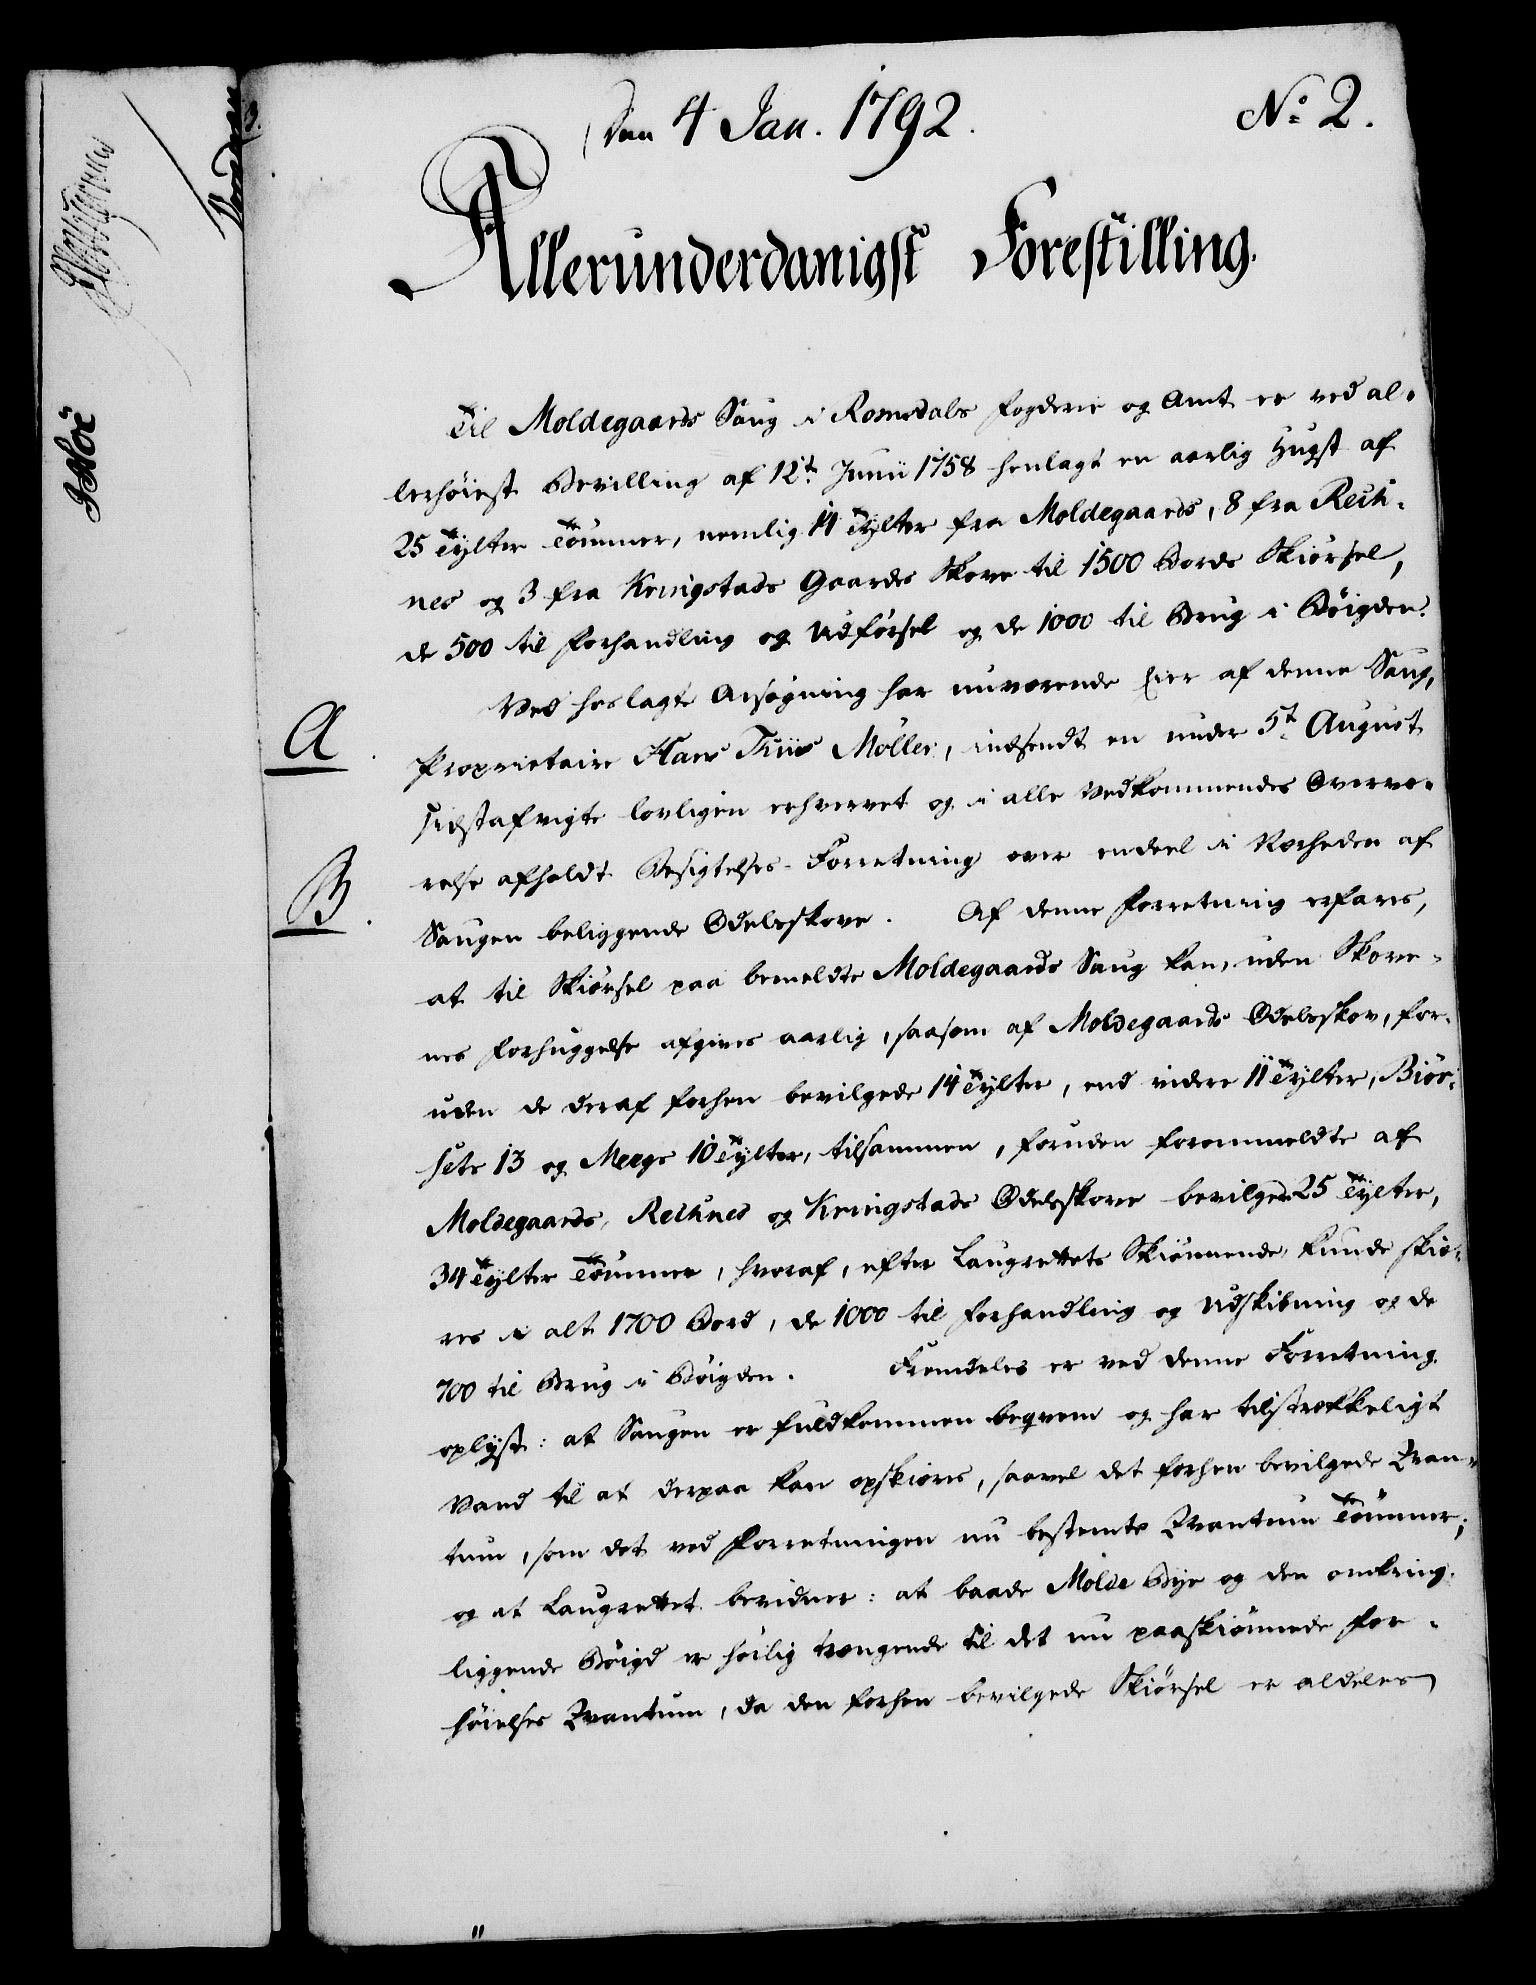 Den 4 Jan. 1792.
No 2.
Allerunderdanigst Forestilling.
Til Moldegaards Saug i Romsdals Fogderie og Amt er ved al-
lerhöiest Bevilling af 12t Junii 1758 henlagt en aarlig Hugst af
25 Tylter Tömmer, nemlig 14 Tylter fra Moldegaards, 8 fra Reck-
nes og 3 fra Kringstads Gaardes Skove til 1500 Bords Skiörsel,
de 500 til Forhandling og Udförsel og de 1000 til Brug i Böigden.
Ved hoslagte Ansögning har nuværende Eier af denne Saug,
A.
Proprietaire Hans Thiis Möller, indsendt en under 5t August
sidstafvigte lovligen erhvervet og i alle Vedkommendes Overvæ-
relse afholdt Besigtelses-Forretning over endeel i Nærheden af
B.
Saugen beliggende Odelsskove. Af denne Forretning erfares,
at til Skiörsel paa bemeldte Moldegaards Saug kan, uden Skove-
nes Forhuggelse afgives aarlig, saasom af Moldegaards Odelsskov, for-
uden de deraf forhen bevilgede 14 Tylter, end videre 11 Tylter, Biör-
sets 13 og Meegs 10 Tylter, tilsammen, foruden forommeldte af
Moldegaards, Recknes og Kringstads Odelsskove bevilgede 25 Tylter,
34 Tylter Tömmer, hvoraf, efter Laugrettets Skiönnende, kunde skiæ-
res i alt 1700 Bord, de 1000 til Forhandling og Udskibning og de
700 til Brug i Böigden. Fremdeles er ved denne Forretning
oplyst: at Saugen er fuldkommen beqvem og har tilstrækkeligt
Vand til at derpaa kan opskiæres, saavel det forhen bevilgede Qvan-
tum, som det ved Forretningen nu bestemte Qvantum Tömmer;
og at Laugrettet bevidner: at baade Molde Bye og den omkring-
liggende Böigd er höilig trængende til det nu paaskiönnede For-
höielses Qvantum, da den forhen bevilgede Skiörsel er aldeles